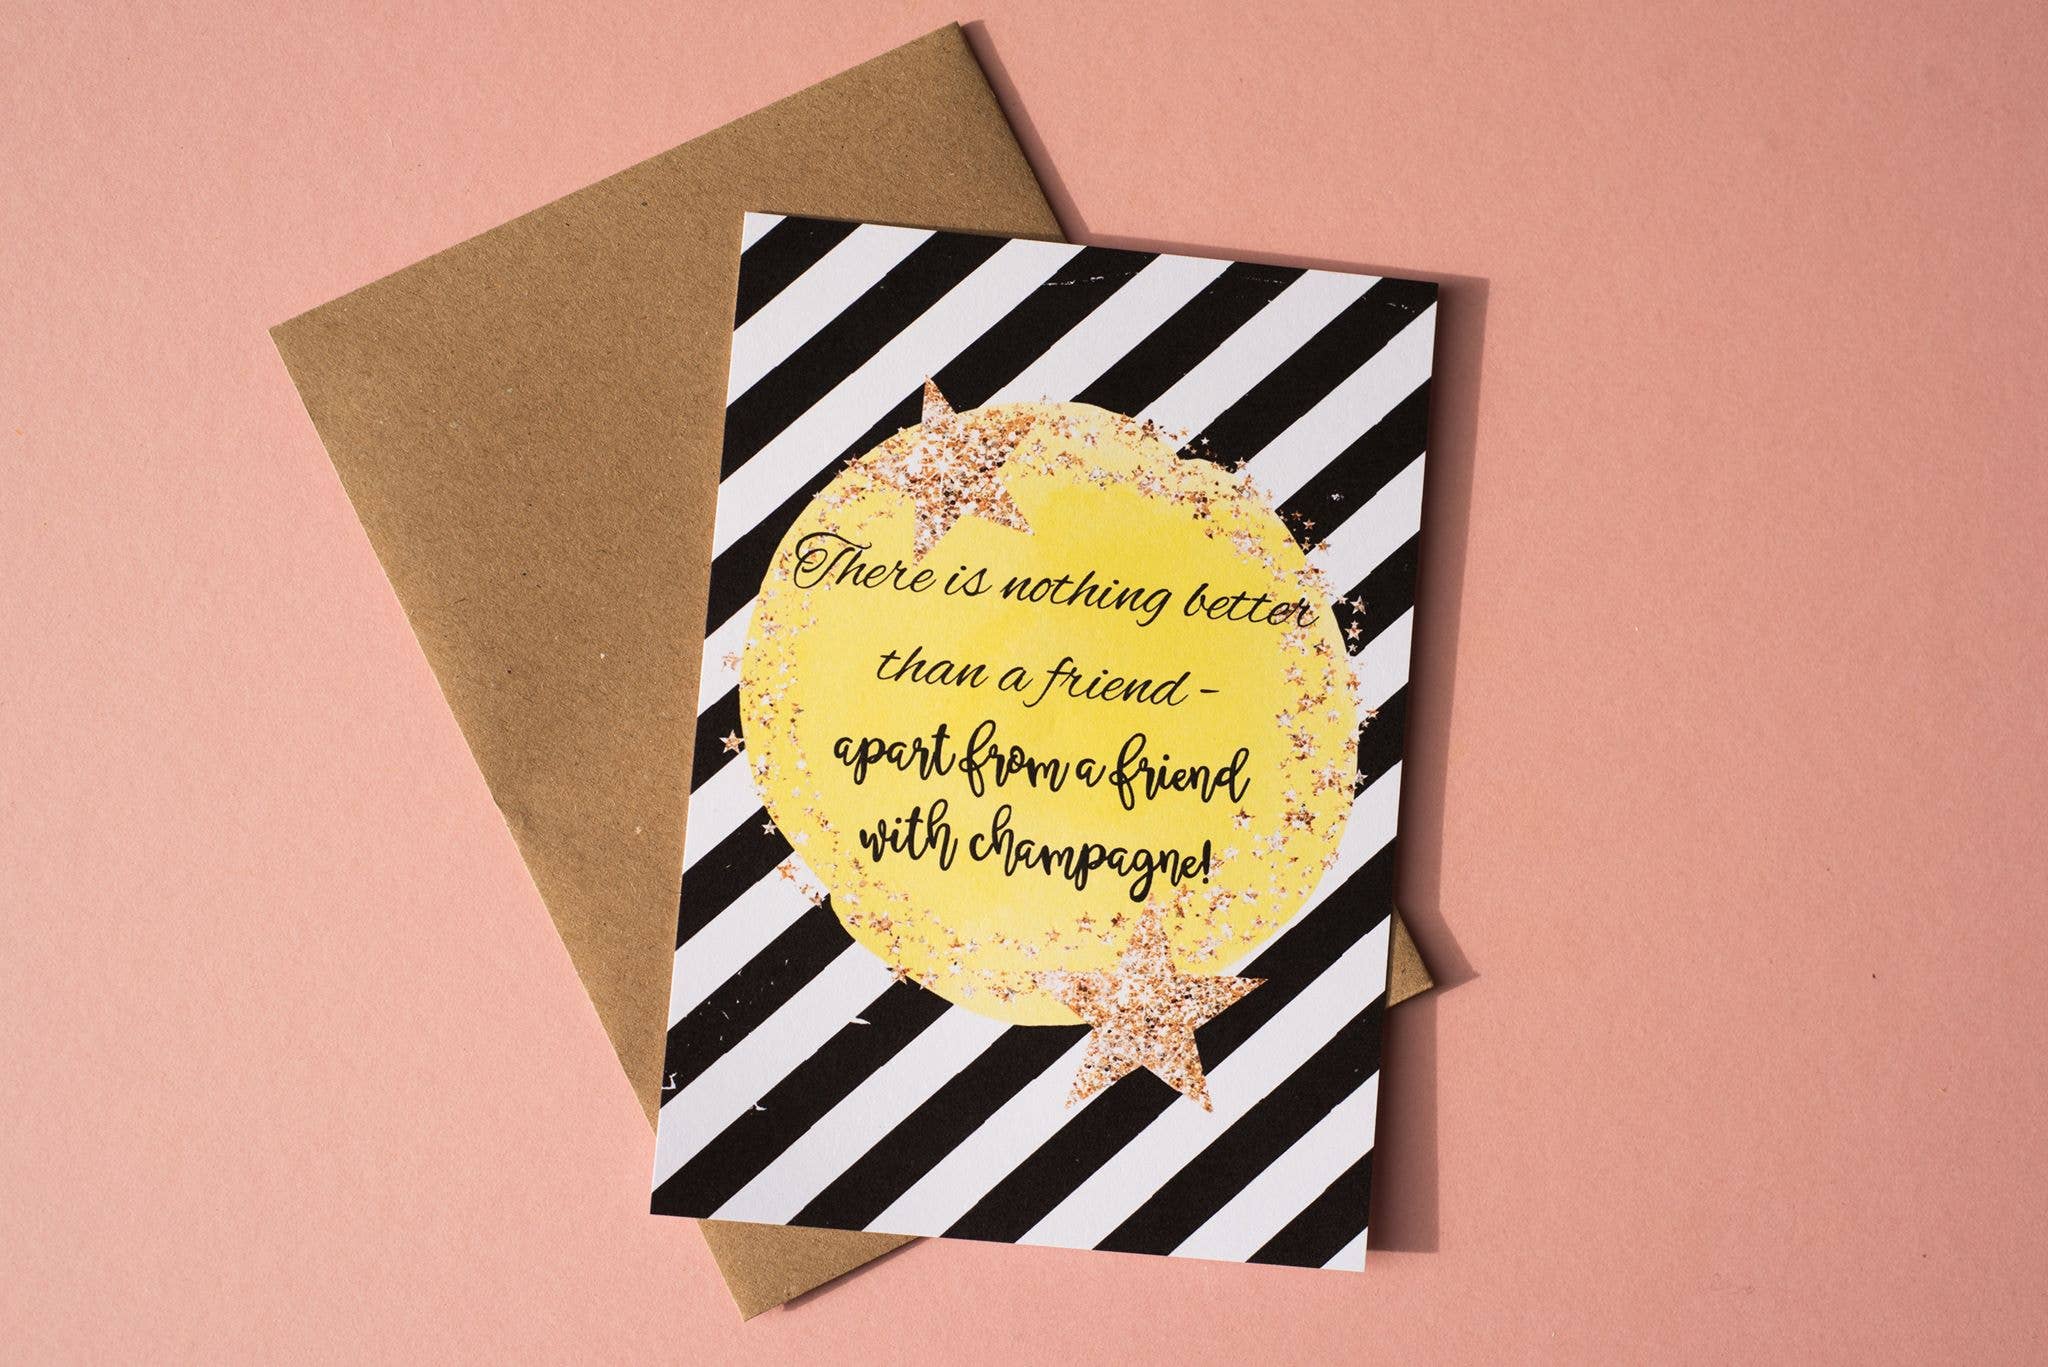 There is nothing better
than a friend -
apart from a friend
with champagne!